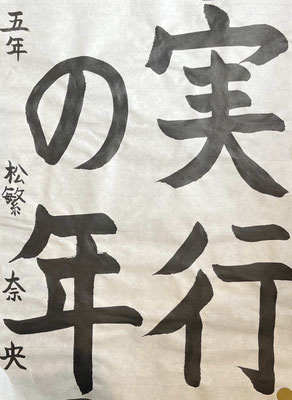 実行
の年
五年 松繁 奈央